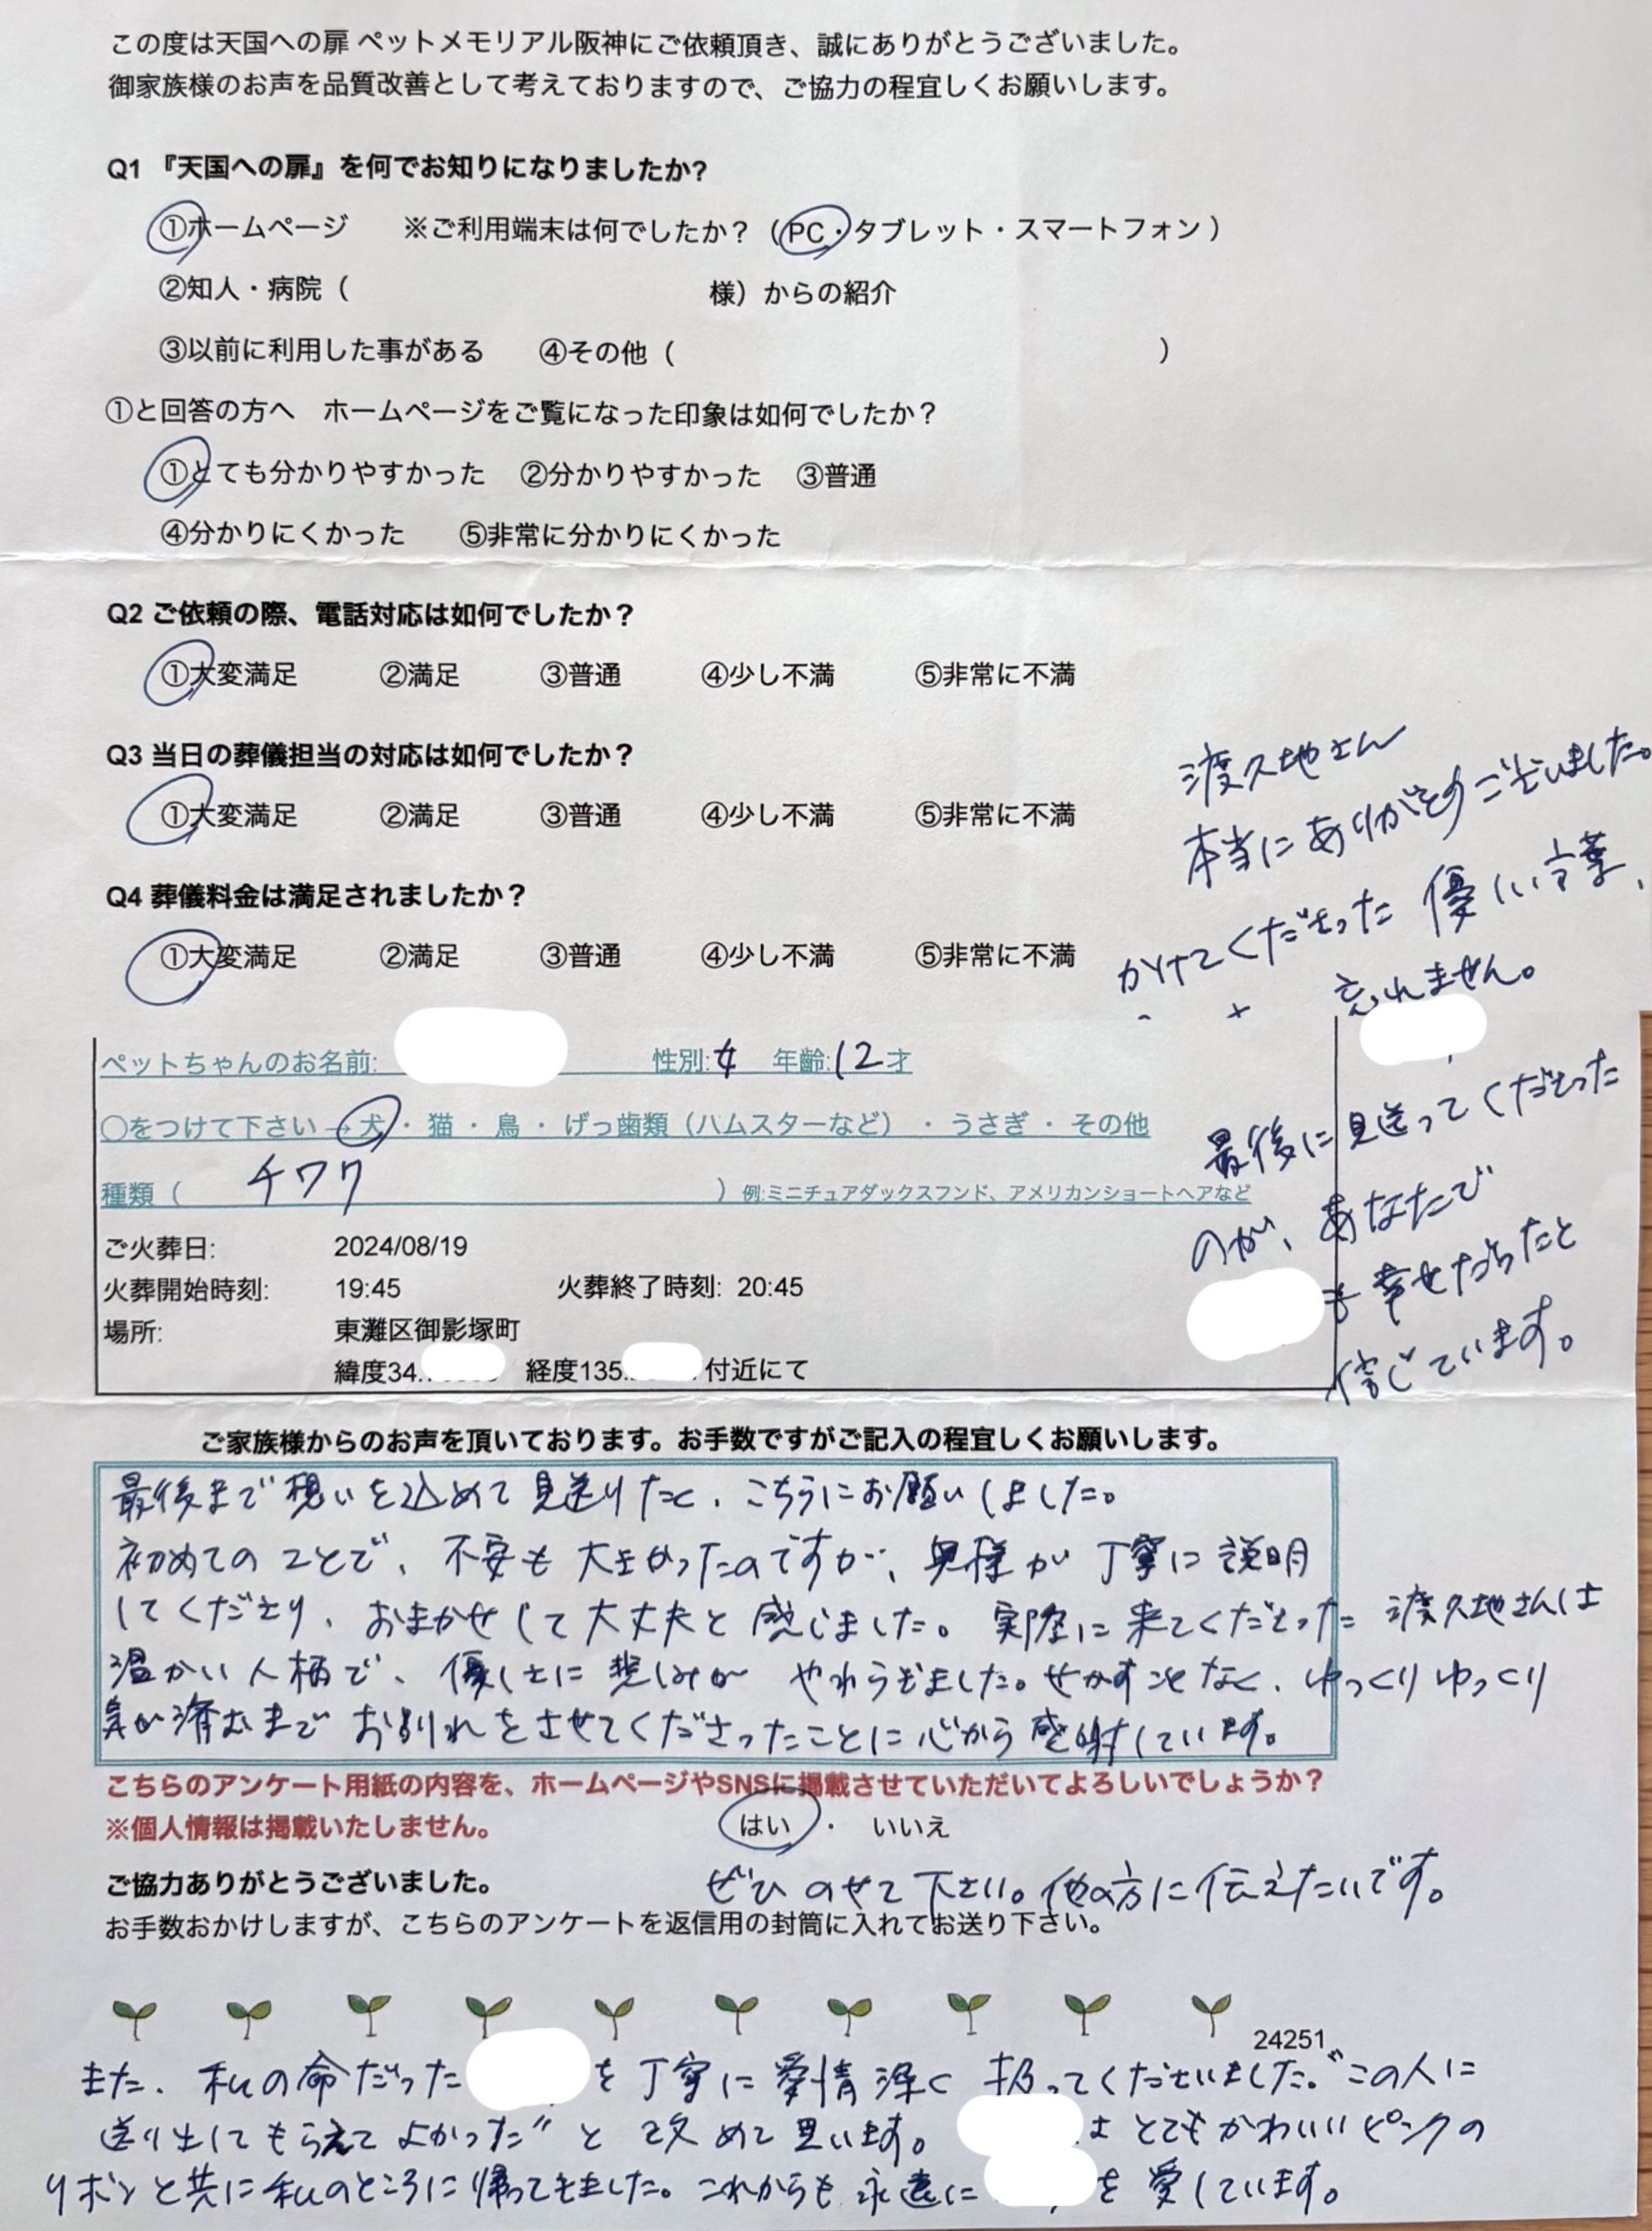 この度は天国への扉 ペットメモリアル阪神にご依頼頂き、誠にありがとうございました。
御家族様のお声を品質改善として考えておりますので、ご協力の程宜しくお願いします。
Q1 『天国への扉』を何でお知りになりましたか?
①ホームページ ※ご利用端末は何でしたか？（PC・タブレット・スマートフォン）
②知人・病院（ 様）からの紹介
③以前に利用した事がある ④その他（ ）
①と回答の方へ ホームページをご覧になった印象は如何でしたか？
①とても分かりやすかった ②分かりやすかった ③普通
④分かりにくかった ⑤非常に分かりにくかった
Q2 ご依頼の際、電話対応は如何でしたか？
①大変満足 ②満足 ③普通 ④少し不満 ⑤非常に不満
Q3 当日の葬儀担当の対応は如何でしたか？
①大変満足 ②満足 ③普通 ④少し不満 ⑤非常に不満
Q4 葬儀料金は満足されましたか？
①大変満足 ②満足 ③普通 ④少し不満 ⑤非常に不満
渡久地さん
本当にありがとうございました。
かけてくださった 優しい言葉、
忘れません。
最後に見送ってくださった
のが、あなたで
も幸せだったと
信じています。
ペットちゃんのお名前: 性別:女 年齢:12才
○をつけて下さい→犬・猫・鳥・げっ歯類（ハムスターなど）・うさぎ・その他
種類（ チワワ ）例:ミニチュアダックスフンド、アメリカンショートヘアなど
ご火葬日: 2024/08/19
火葬開始時刻: 19:45 火葬終了時刻: 20:45
場所: 東灘区御影塚町
緯度34. 経度135. 付近にて
ご家族様からのお声を頂いております。お手数ですがご記入の程宜しくお願いします。
最後まで想いを込めて見送りたく、こちらにお願いしました。
初めてのことで、不安も大きかったのですが、奥様が丁寧に説明
してくださり、おまかせして大丈夫と感じました。実際に来てくださった渡久地さんは
温かい人柄で、優しさに悲しみが やわらぎました。せかすことなく、ゆっくりゆっくり
気が済むまで お別れをさせてくださったことに心から感謝しています。
こちらのアンケート用紙の内容を、ホームページやSNSに掲載させていただいてよろしいでしょうか？
※個人情報は掲載いたしません。 はい ・ いいえ
ご協力ありがとうございました。
ぜひ のせて下さい。他の方に伝えたいです。
お手数おかけしますが、こちらのアンケートを返信用の封筒に入れてお送り下さい。
24251
また、私の命だった を丁寧に愛情深く 扱ってくださいました。“この人に
送り出してもらえて よかった”と 改めて思います。 は とてもかわいいピンクの
リボンと共に私のところに帰ってきました。これからも永遠に を愛しています。